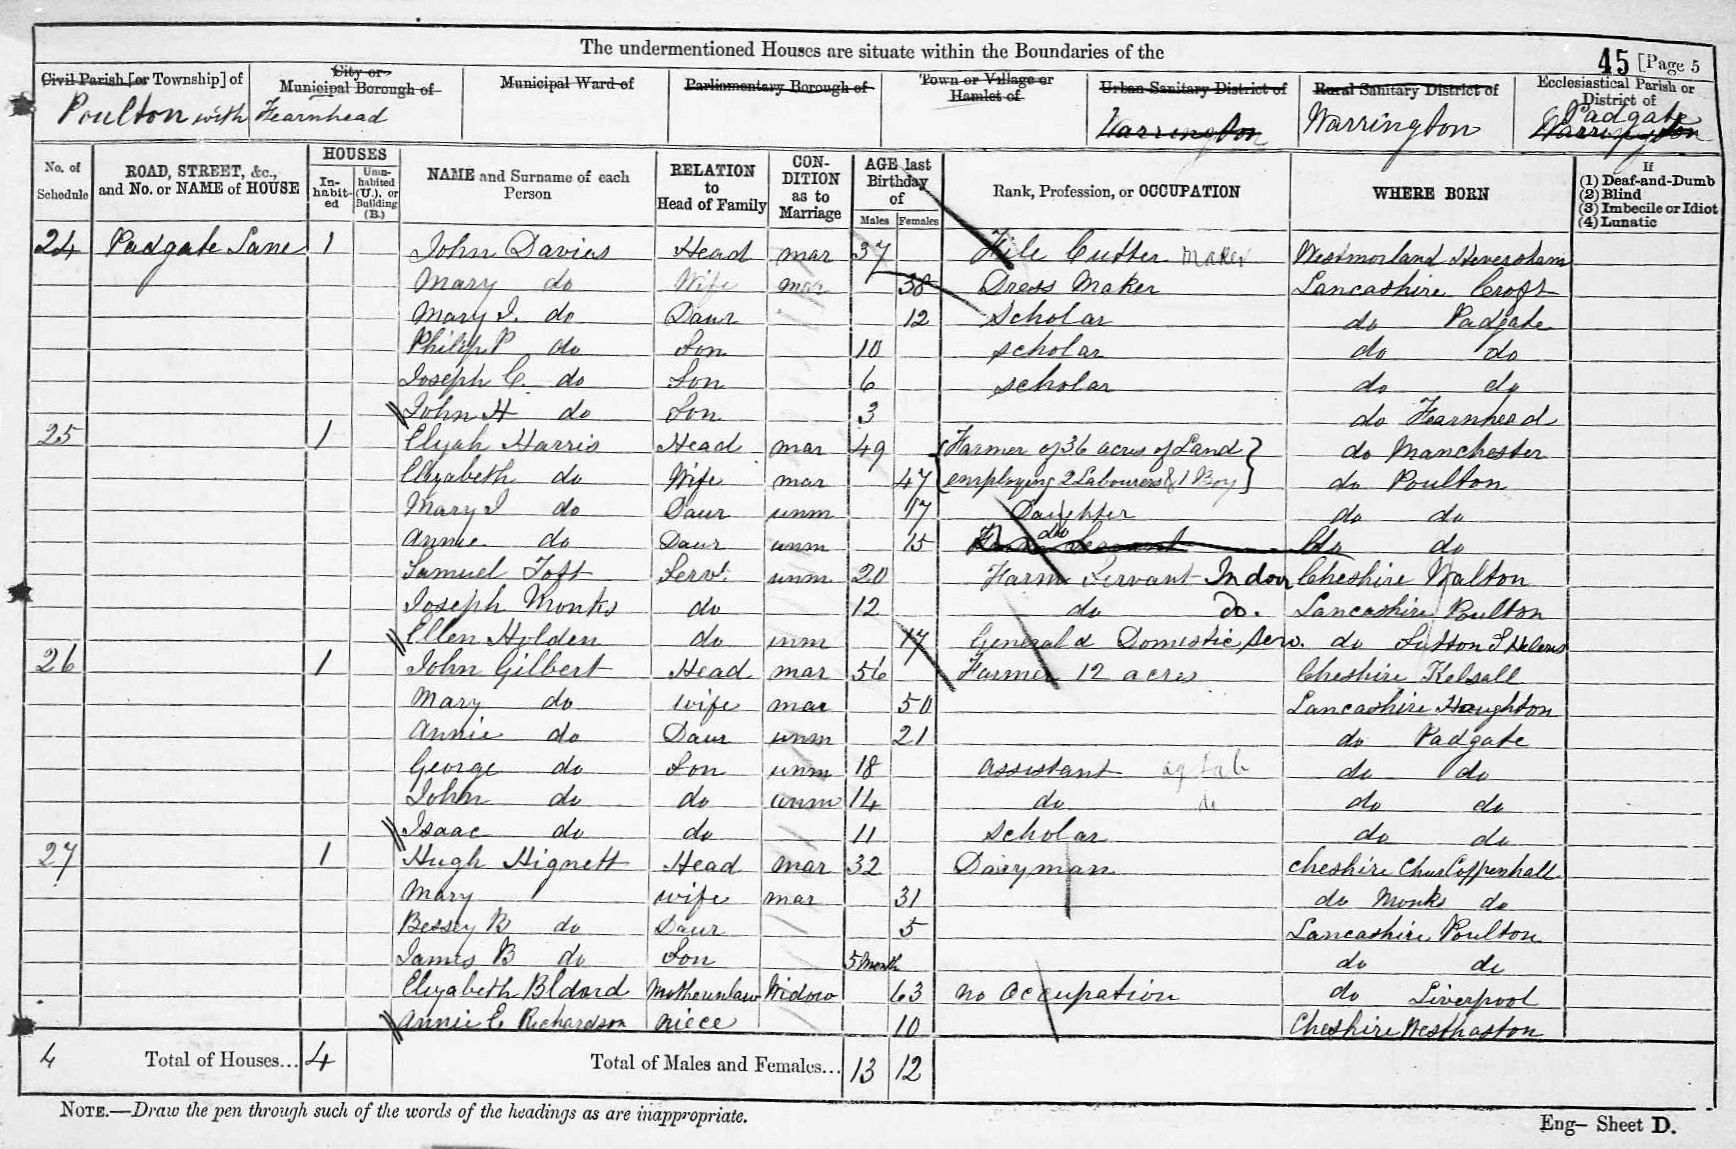 The undermentioned Houses are situate within the Boundaries of the
45 [Page 5
Civil Parish [or Township] of
City or Municipal Borough of
Municipal Ward of
Parliamentary Borough of
Town or Village or Hamlet of
Urban Sanitary District of
Rural Sanitary District of
Ecclesiastical Parish or District of
Poulton with Fearnhead Warrington Warrington Padgate Warrington
No. of Schedule
ROAD, STREET, &c., and No. or NAME of HOUSE
HOUSES
In-habit-ed
Unin-habited (U.), or Building (B.)
NAME and Surname of each Person
RELATION to Head of Family
CON-DITION as to Marriage
AGE last Birthday of
Males Females
Rank, Profession, or OCCUPATION
WHERE BORN
If
(1) Deaf-and-Dumb
(2) Blind
(3) Imbecile or Idiot
(4) Lunatic
24 Padgate Lane 1 John Davies Head mar 37 File Cutter maker Westmorland Heversham
Mary do Wife mar 38 Dress Maker Lancashire Croft
Mary J. do Daur 12 Scholar do Padgate
Philip P do Son 10 scholar do do
Joseph C. do Son 6 scholar do do
John H do Son 3 do Fearnhead
25 1 Elijah Harris Head mar 49 Farmer of 36 acres of Land do Manchester
Elizabeth do Wife mar 47 employing 2 Labourers & 1 Boy do Poulton
Mary J do Daur unm 17 Daughter do do
Annie do Daur unm 15 do Farm Servant do do
Samuel Toft Servt. unm 20 Farm Servant Indoor Cheshire Walton
Joseph Monks do 12 do do. Lancashire Poulton
Ellen Holden do unm 17 General Domestic Serv. do Sutton St Helens
26 1 John Gilbert Head mar 56 Farmer 12 acres Cheshire Kelsall
Mary do wife mar 50 Lancashire Houghton
Annie do Daur unm 21 do Padgate
George do Son unm 18 Assistant ag lab do do
John do do unm 14 do do do do
Isaac do do 11 Scholar do do
27 1 Hugh Hignett Head mar 32 Dairyman Cheshire Coppenhall
Mary wife mar 31 do Monks do
Bessey B do Daur 5 Lancashire Poulton
James B do Son 5 Month do do
Elizabeth Motherinlaw Widow 63 No Occupation do Liverpool
Annie E. Richardson Niece 10 Cheshire Westhaston
4 Total of Houses... 4 Total of Males and Females... 13 12
NOTE.—Draw the pen through such of the words of the headings as are inappropriate.
Eng— Sheet D.